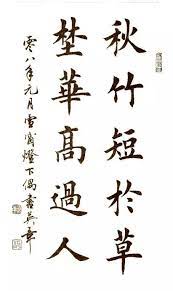 秋竹短於草
埜華高過人
零八年元月雪宵燈下偶書